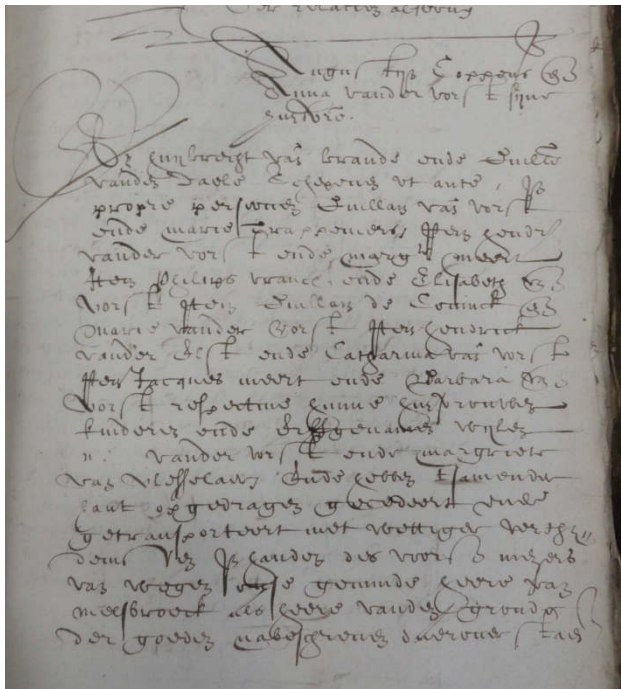 der relatien alsvoirs
Augustijn Coppens en
Anna vander vorst sijne
huysvre.
Vor huijbrecht van brande ende Guill
vanden Daele Schepenen ut ante, In
proprie persoonen Guillam van vorst
ende marie Trappeniers Item hendr
vander vorst ende margr meert
Item Philips vranck ende Elisabeth
vorst Item Guillam de Coninck en
Marie vander Vorst Item hendrick
vander Elst ende Catharina van vorst
Item Jacques meert ende Barbara van
Vorst respective hunne huysvrouwen
kinderen ende Erffgenamen wijlen
vander vorst ende margriete
van Messelaers Ende hebben tsamender
hant opgedragen gecedeert ende
getransporteert met wettiger verthy
denissen In handen des voors meyers
van wegen onse geminde heere van
meesbroeck als heere vanden gronde
der goeden nabeschreven daerover staen